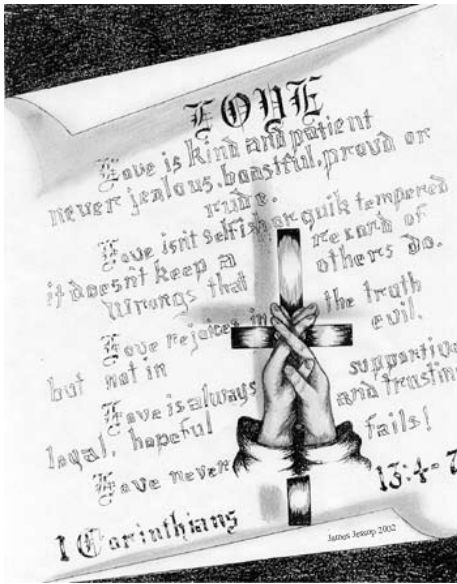 LOVE
Love is kind and patient
never jealous, boastful, proud or
rude.
Love isn't selfish or quik tempered
it doesn't keep a record of
wrongs that others do.
Love rejoices in the truth
but not in evil.
Love is always supportive
loyal, hopeful and trusting
Love never fails!
1 Corinthians 13:4-7
James Jessop 2002